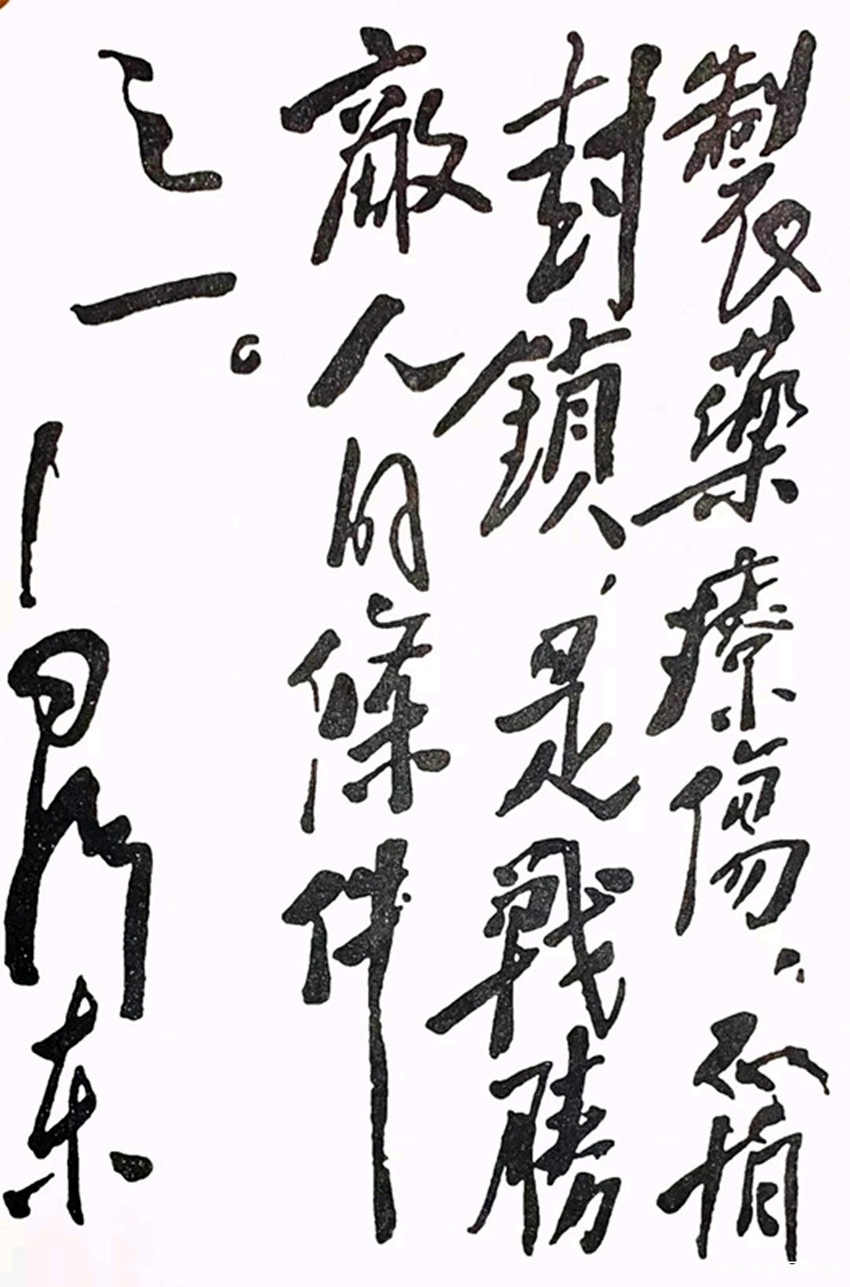 製藥療傷、不怕
封鎖，是戰勝
敵人的條件
之一。
—毛澤東